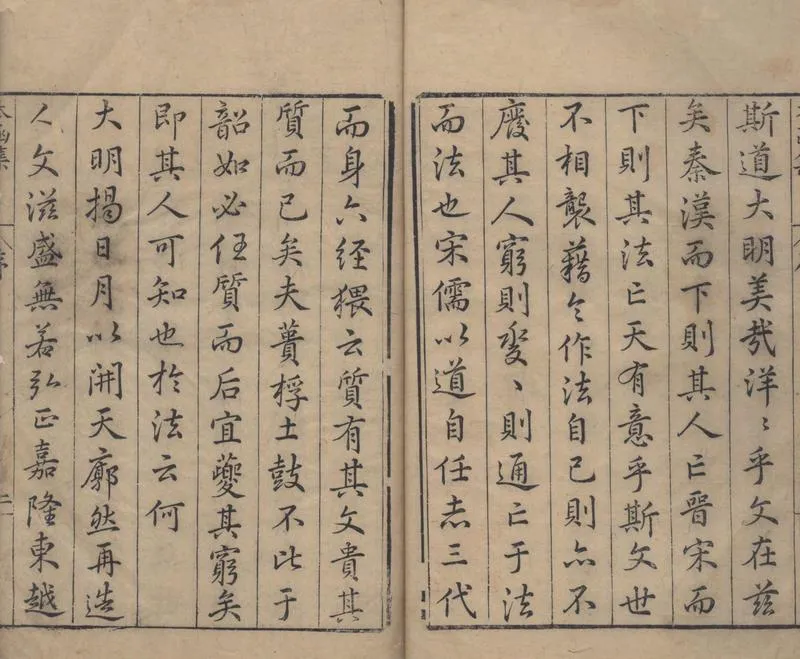 斯道大明美哉洋〻乎文在茲
矣秦漢而下則其人亡晉宋而
下則其法亡天有意乎斯文世
不相襲藉令作法自已則亦不
廢其人窮則變〻則通亡于法
而法也宋儒以道自任志三代
而身六経猥云質有其文貴其
質而已矣夫蕢桴土鼓不比于
韶如必任質而后宜夔其窮矣
即其人可知也於法云何
大明揭日月以開天廓然再造
人文滋盛無若弘正嘉隆東越